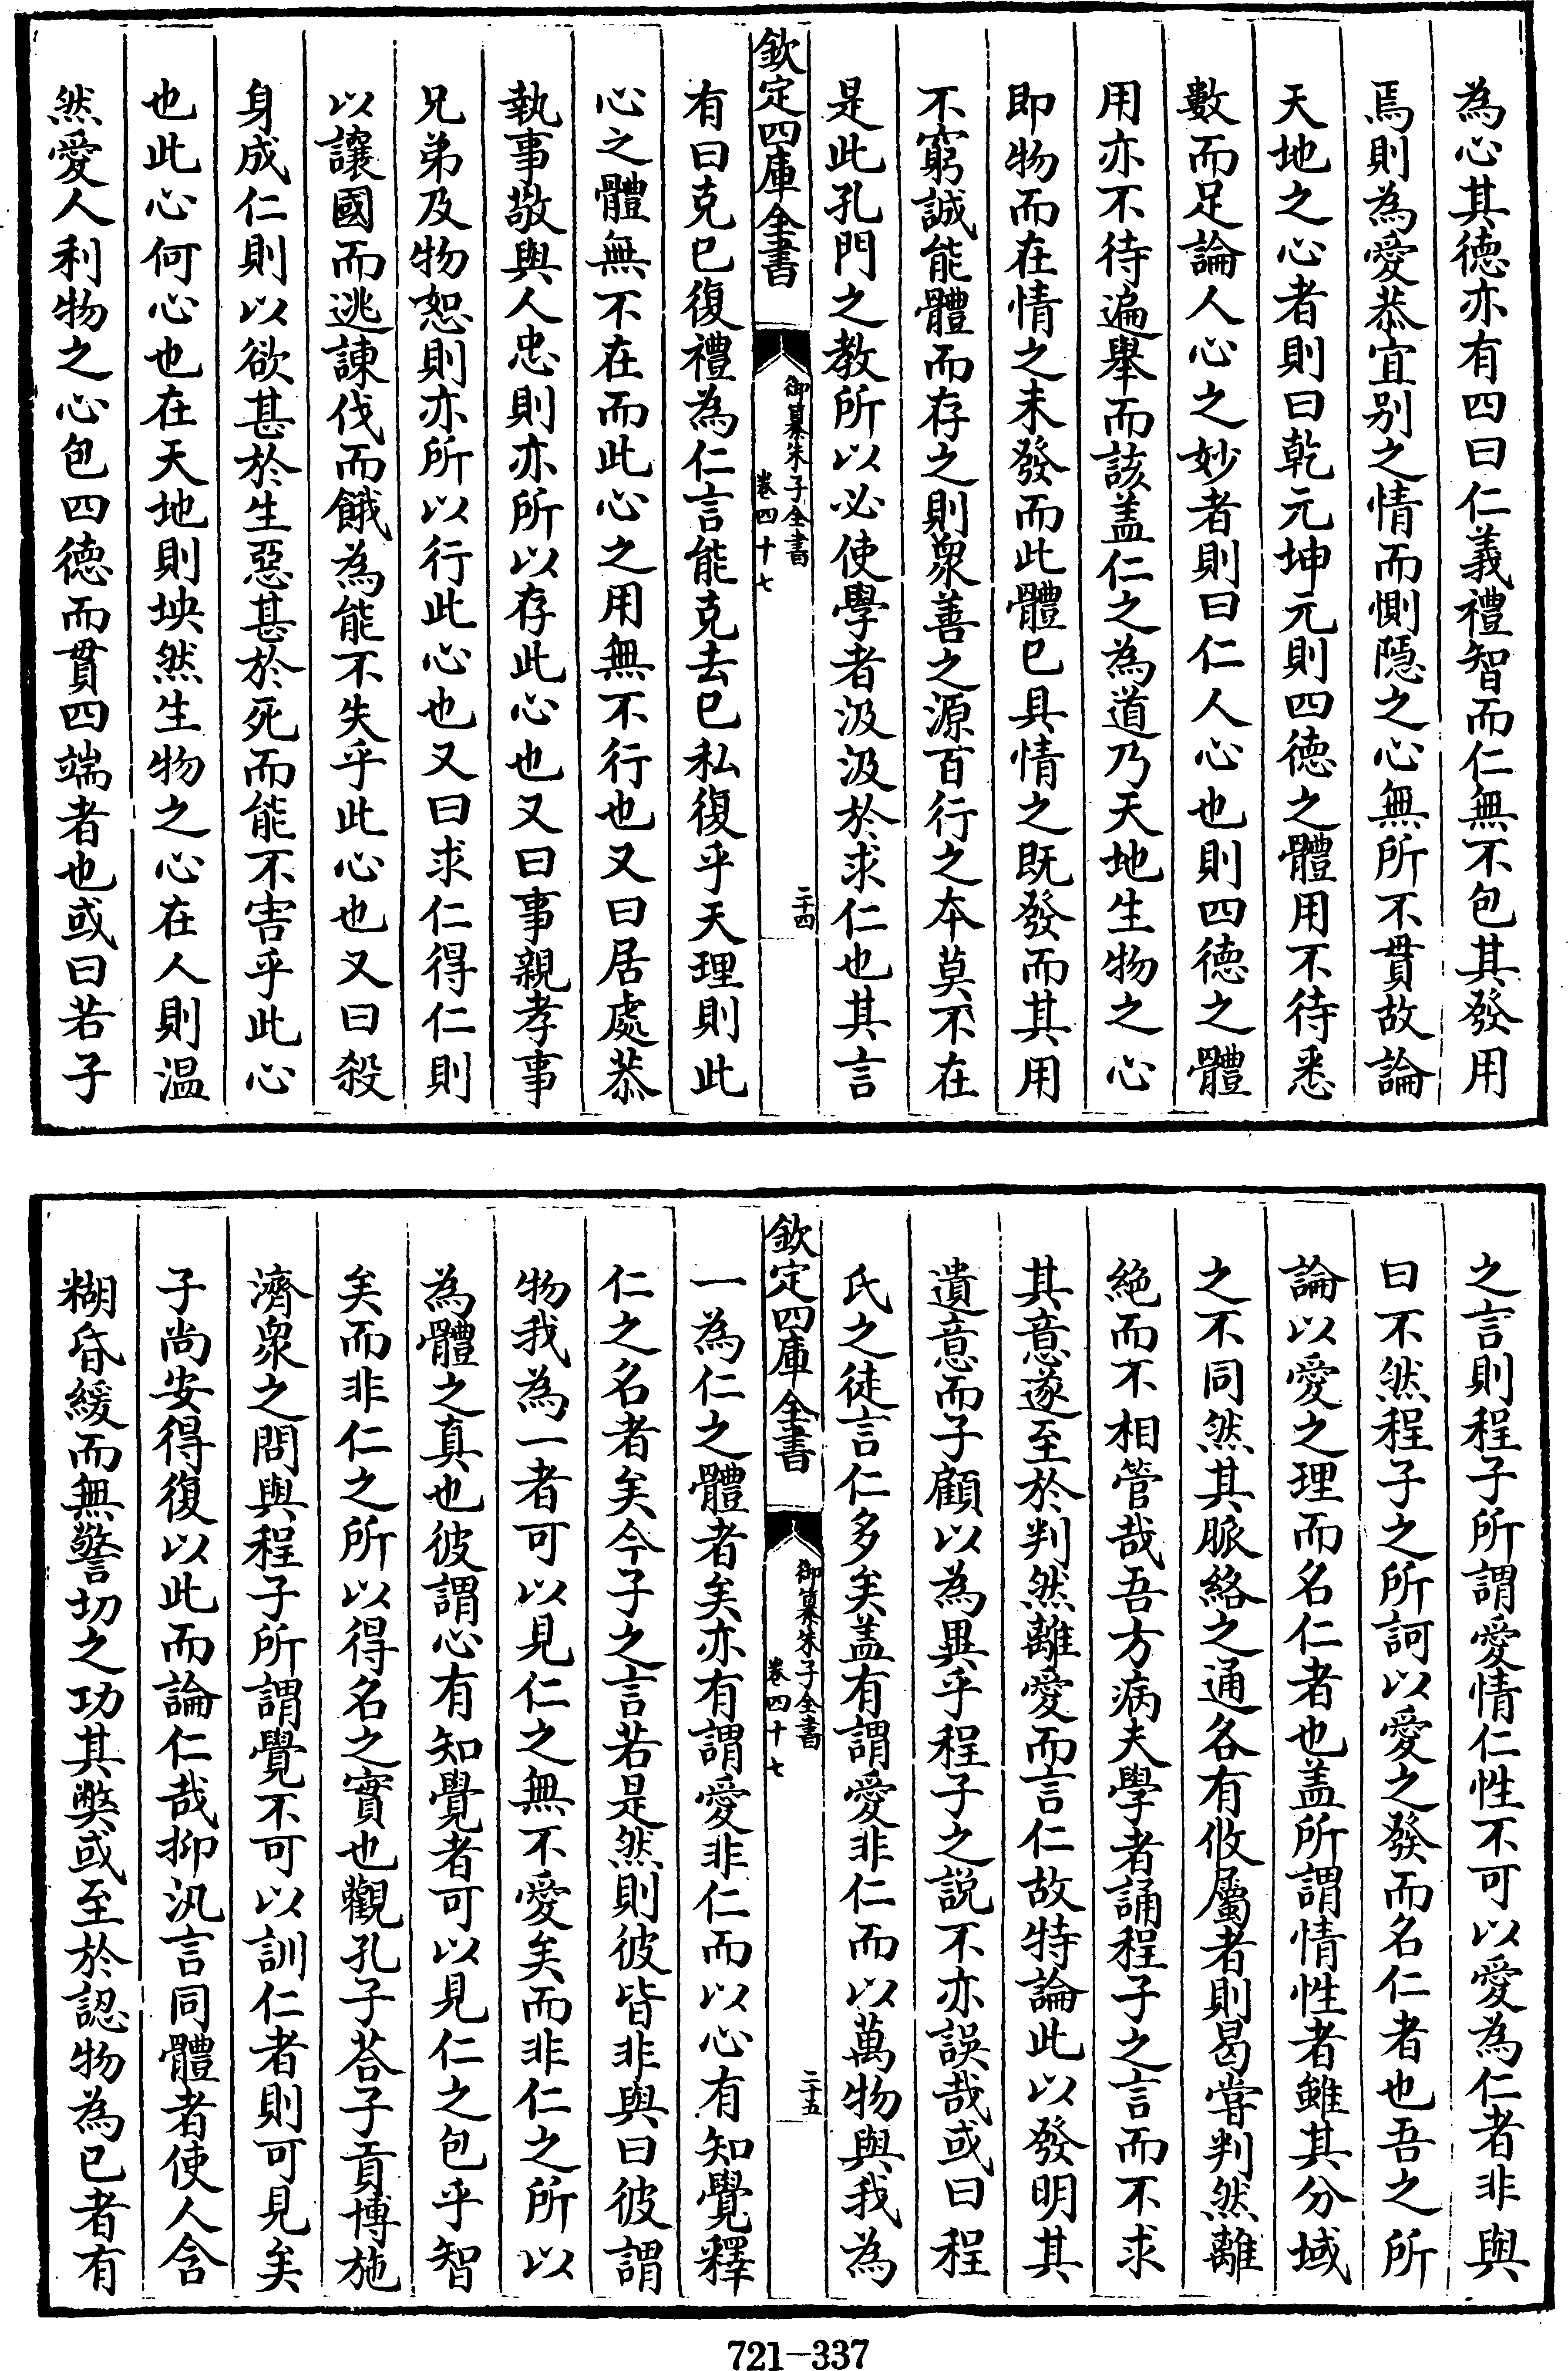 為心其德亦有四曰仁義禮智而仁無不包其發用
焉則為愛恭宜别之情而惻隠之心無所不貫故論
天地之心者則曰乾元坤元則四德之體用不待悉
數而足論人心之妙者則曰仁人心也則四德之體
用亦不待遍舉而該盖仁之為道乃天地生物之心
即物而在情之未發而此體已具情之既發而其用
不窮誠能體而存之則衆善之源百行之本莫不在
是此孔門之教所以必使學者汲汲於求仁也其言
欽定四庫全書
御纂朱子全書
卷四十七
二十四
有曰克已復禮為仁言能克去已私復乎天理則此
心之體無不在而此心之用無不行也又曰居處恭
執事敬與人忠則亦所以存此心也又曰事親孝事
兄弟及物恕則亦所以行此心也又曰求仁得仁則
以讓國而逃諫伐而餓為能不失乎此心也又曰殺
身成仁則以欲甚於生惡甚於死而能不害乎此心
也此心何心也在天地則坱然生物之心在人則温
然愛人利物之心包四德而貫四端者也或曰若子
之言則程子所謂愛情仁性不可以愛為仁者非與
曰不然程子之所訶以愛之發而名仁者也吾之所
論以愛之理而名仁者也盖所謂情性者雖其分域
之不同然其脈絡之通各有攸屬者則曷嘗判然離
絶而不相管哉吾方病夫學者誦程子之言而不求
其意遂至於判然離愛而言仁故特論此以發明其
遺意而子顧以為異乎程子之說不亦誤哉或曰程
氏之徒言仁多矣盖有謂愛非仁而以萬物與我為
欽定四庫全書
御纂朱子全書
卷四十七
二十五
一為仁之體者矣亦有謂愛非仁而以心有知覺釋
仁之名者矣今子之言若是然則彼皆非與曰彼謂
物我為一者可以見仁之無不愛矣而非仁之所以
為體之真也彼謂心有知覺者可以見仁之包乎智
矣而非仁之所以得名之實也觀孔子荅子貢博施
濟衆之問與程子所謂覺不可以訓仁者則可見矣
子尚安得復以此而論仁哉抑汎言同體者使人含
糊昏緩而無警切之功其弊或至於認物為已者有
721—337